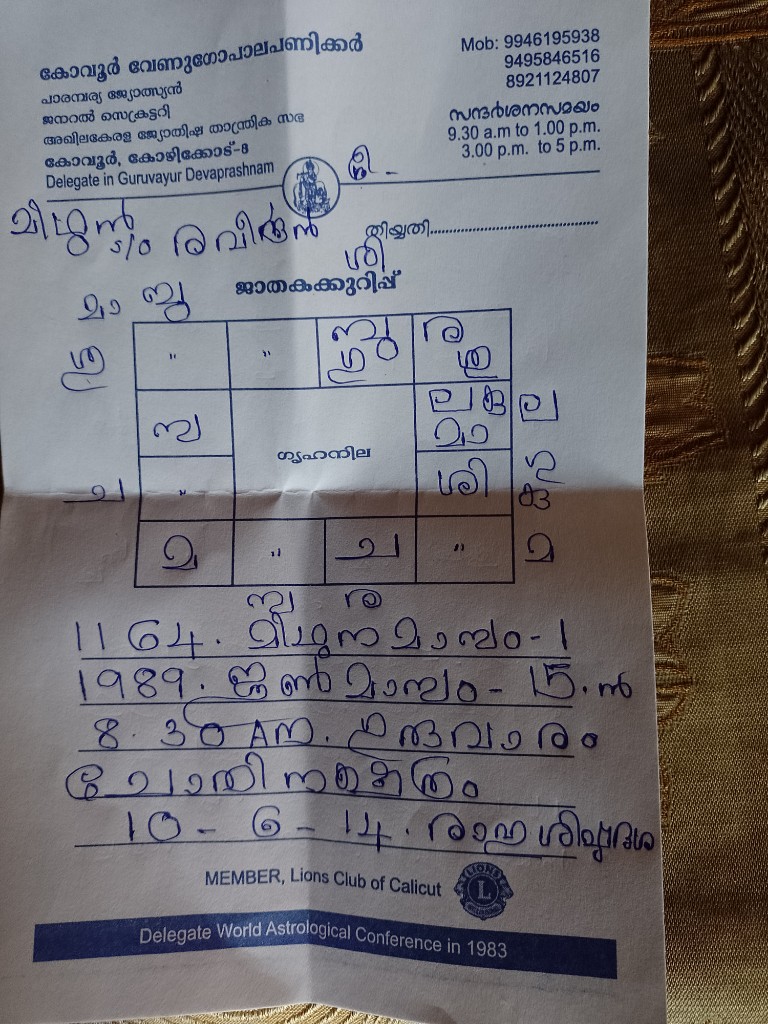 കോവൂർ വേണുഗോപാലപണിക്കർ
പാരമ്പര്യ ജ്യോത്സ്യൻ
ജനറൽ സെക്രട്ടറി
അഖിലകേരള ജ്യോതിഷ താന്ത്രിക സഭ
കോവൂർ, കോഴിക്കോട്-8
Delegate in Guruvayur Devaprashnam
Mob: 9946195938
9495846516
8921124807
സന്ദർശനസമയം
9.30 a.m to 1.00 p.m.
3.00 p.m. to 5 p.m.
മിഥുൻ s/o രവീന്ദ്രൻ
തിയ്യതി
ശി
ജാതകക്കുറിപ്പ്
മാ ബു
" " ബു ര
ല മാ ല
ഗൃഹനില
ച " ശി
മ " ച " മ
ര
1164. മിഥുനമാസം-1
1989. ജൂൺ മാസം - 15.ന്
8.30 AM. ഗുരുവാരം
ചോതി നക്ഷത്രം
10-6-14. രാഹുശിഷ്ടദശ
MEMBER, Lions Club of Calicut
LIONS
L
Delegate World Astrological Conference in 1983